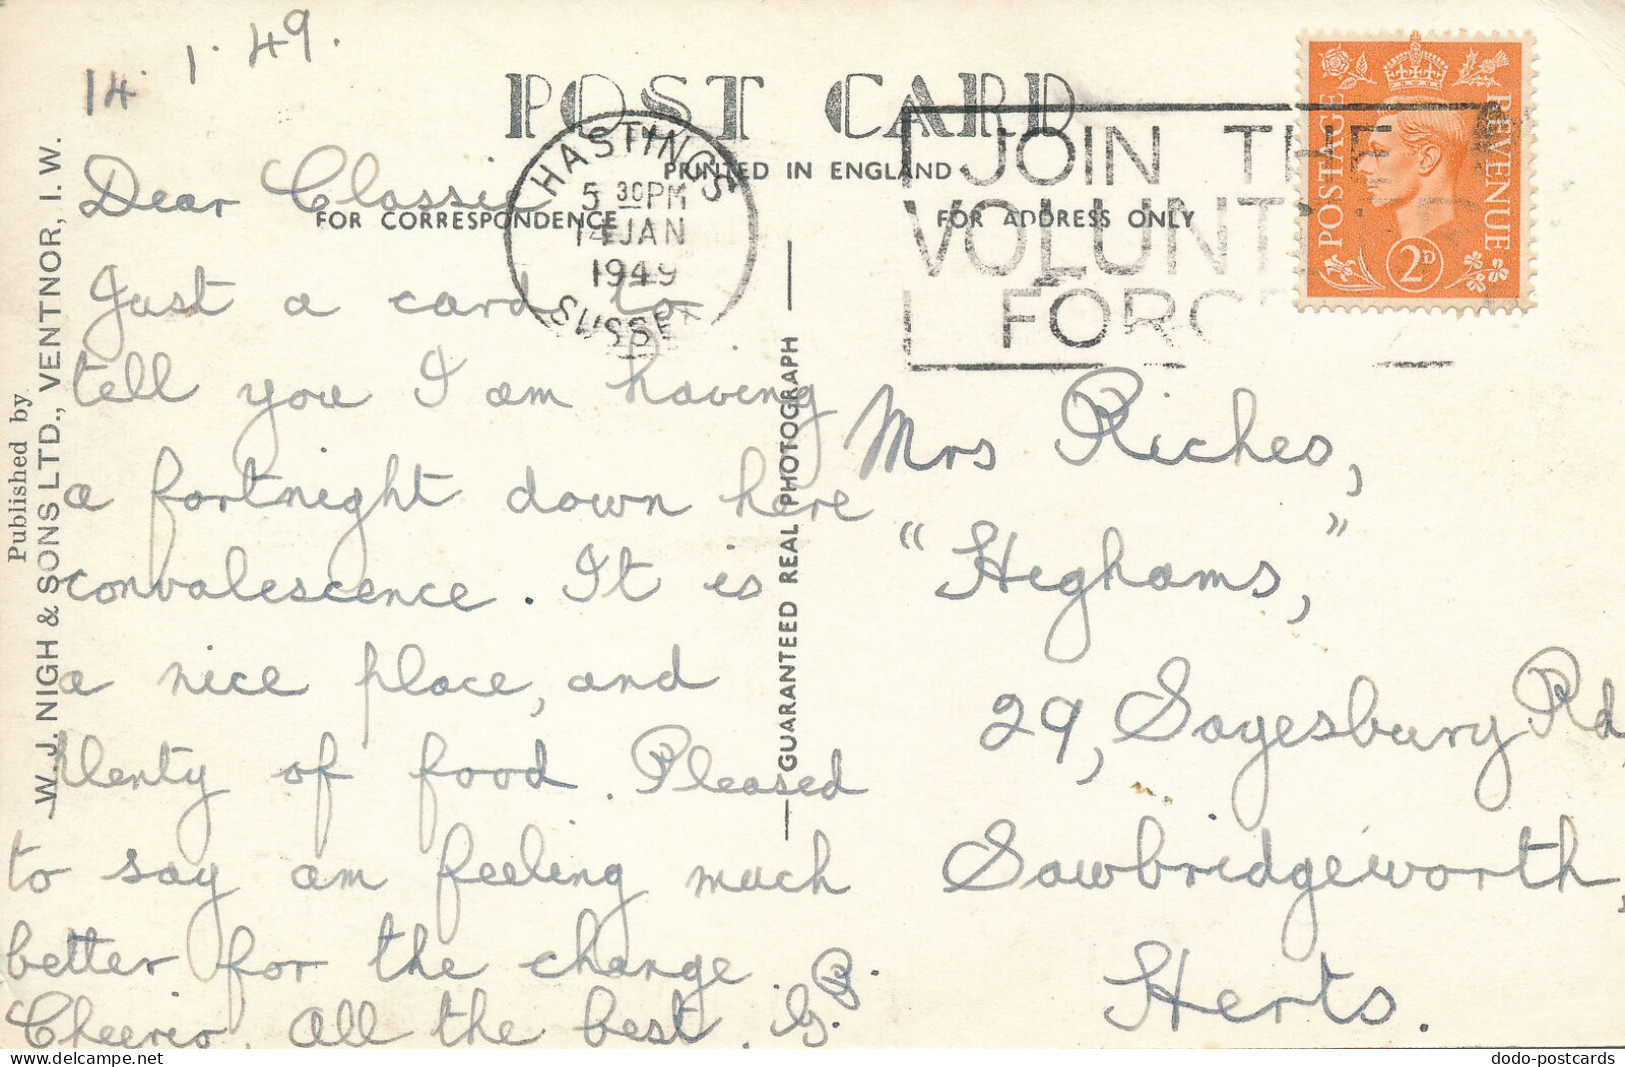 14. 1. 49.
POST CARD
PRINTED IN ENGLAND
FOR CORRESPONDENCE
FOR ADDRESS ONLY
HASTINGS
5 30PM
14 JAN
1949
SUSSEX
JOIN THE
VOLUNT
FORC
POSTAGE
REVENUE
2D
Published by
W. J. NIGH & SONS LTD., VENTNOR, I. W.
GUARANTEED REAL PHOTOGRAPH
Dear Classie
Just a card to
tell you I am having
a fortnight down here
convalescence. It is
a nice place, and
plenty of food. Pleased
to say am feeling much
better for the change.
Cheerio. All the best. G. B.
Mrs Riches,
"Highams,"
29, Sayesbury Rd,
Sawbridgeworth,
Herts.
dodo-postcards